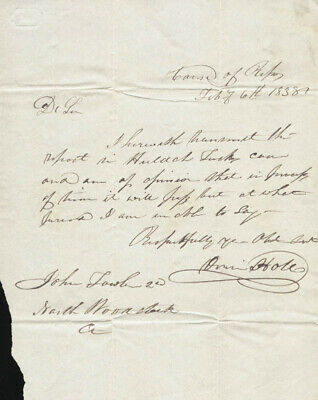 House of Reps
Feby 6th 1838
Dr Sir
I herewith transmit the
report in Huldah case
and am of opinion that in
of time it will pass but at what
I am not able to Say
Respectfully yr Obt Svt
Orrin Holt
John
North Woodstock
Ct